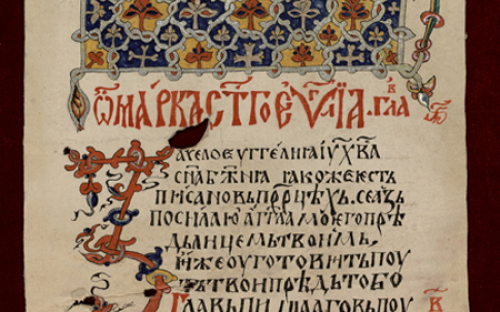 Ѿ МАРКА СТ҃ГО ЕѴ҃ЛІА · ГЛА в҃
Зачело еѵггелиꙗ іу҃ х҃ва
сн҃а бж҃иꙗ ꙗкоже есть
писано въ пр҇рцѣхъ. се азъ
посилаю агг҃ла моего прѣ
дь лицемь твоимь,
иже оуготовить поу
ть твои прѣдь тобо
Глась въпиющаго въ поу